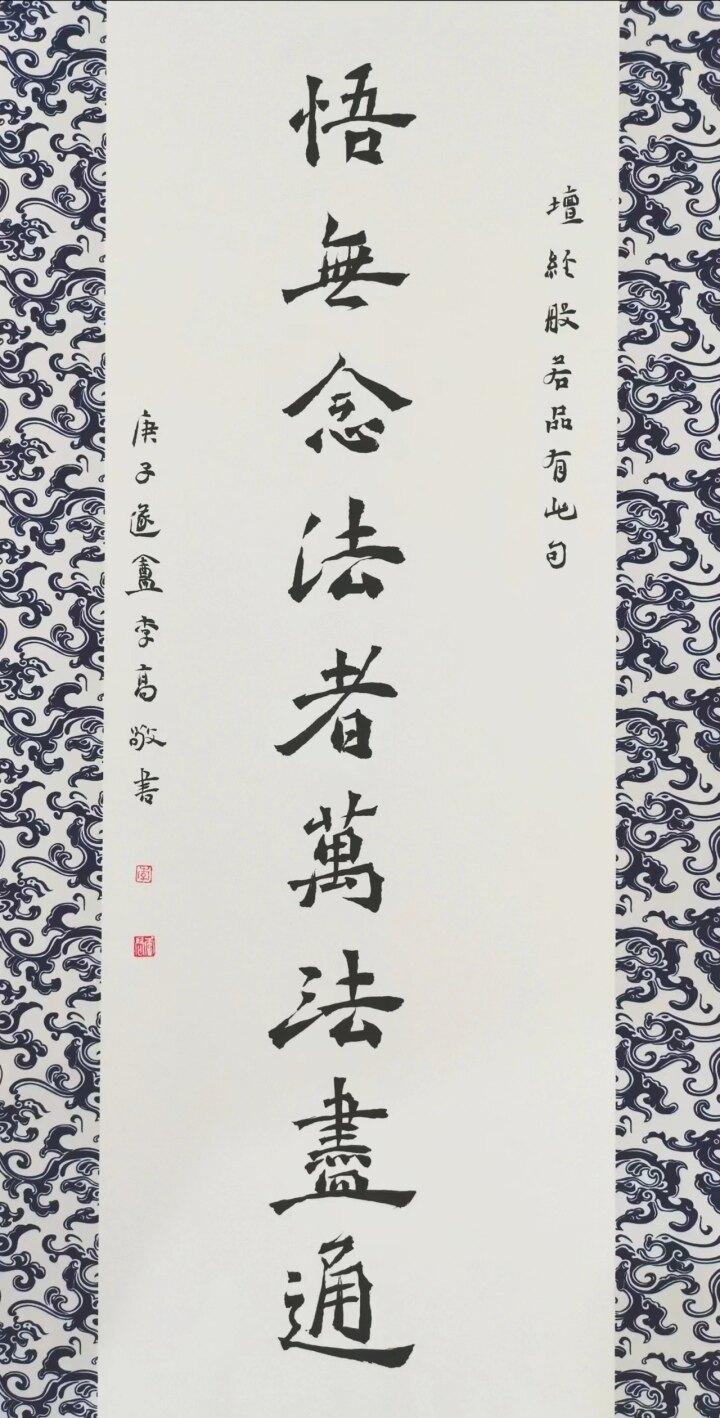 壇經般若品有此句
悟無念法者萬法盡通
庚子遂盦李高敬書